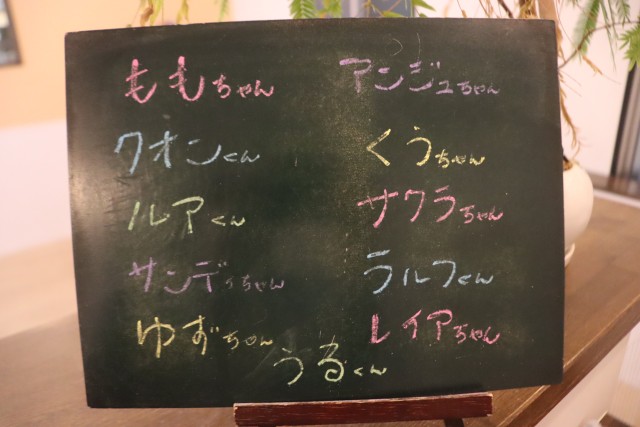 ももちゃん
クオンくん
ルアくん
サンディちゃん
ゆずちゃん
アンジュちゃん
くうちゃん
サクラちゃん
ラルフくん
レイアちゃん
うるくん